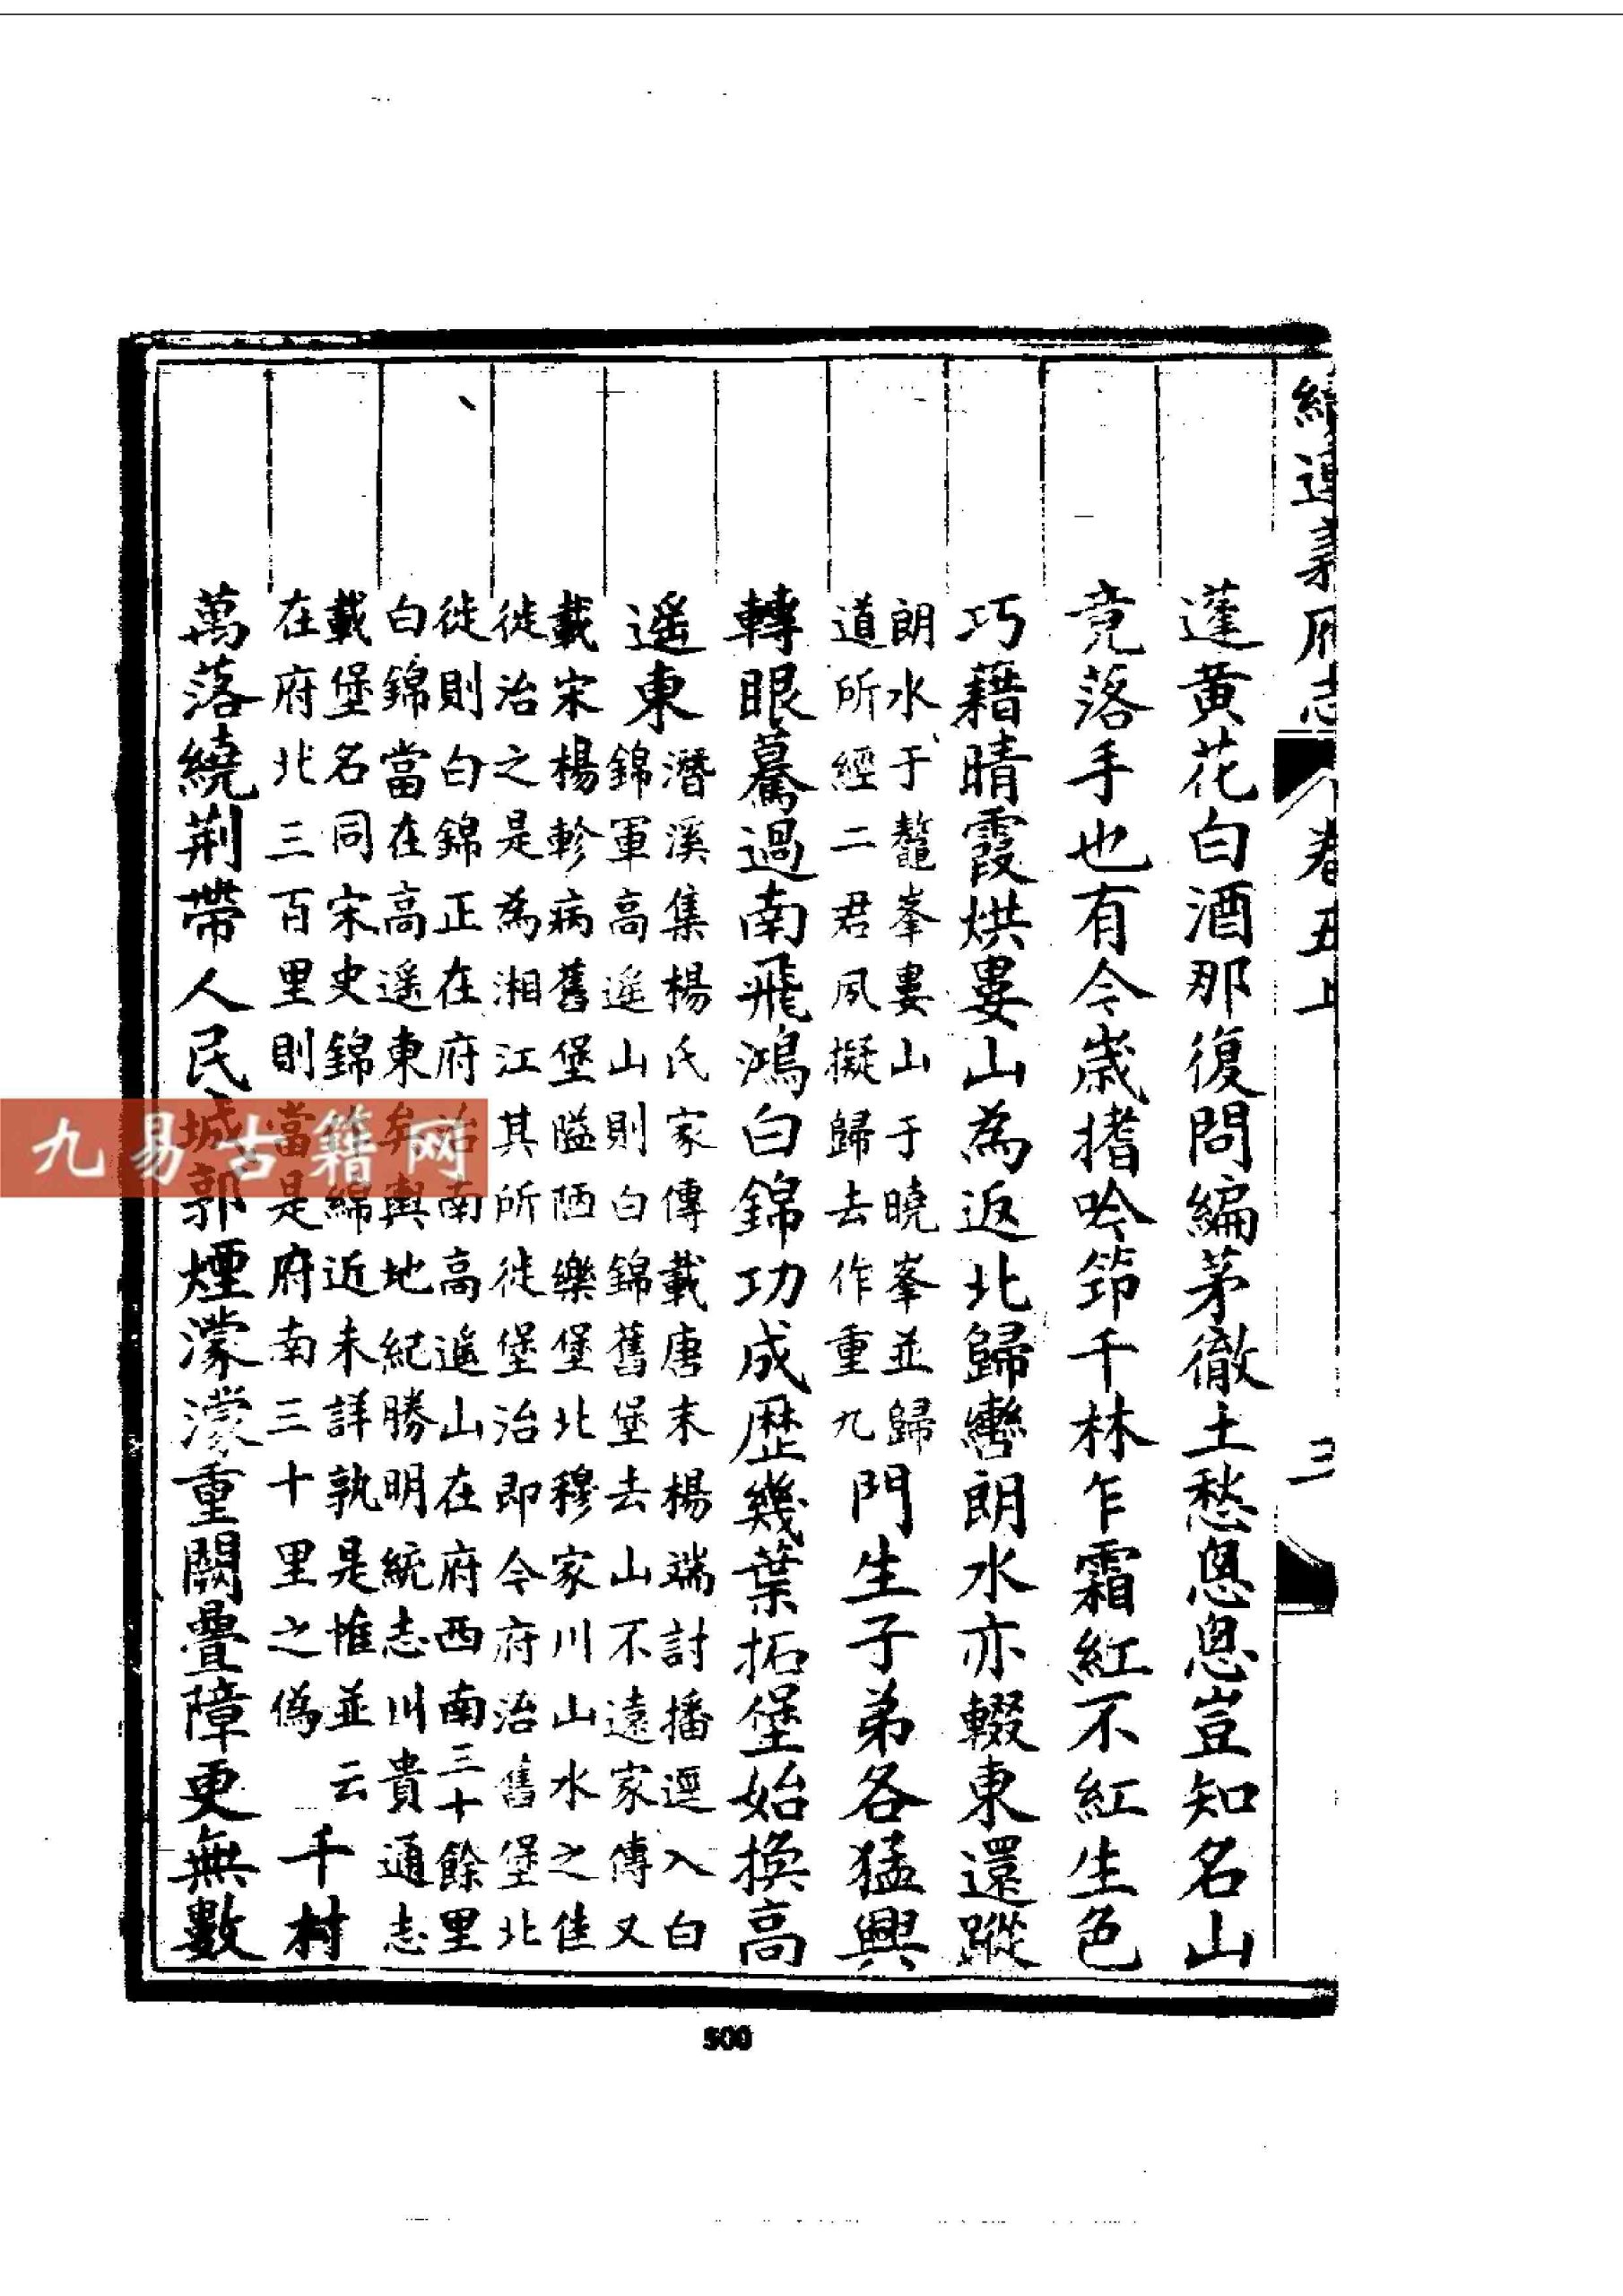 續遵義府志 卷五上 三
蓬黃花白酒那復問編茅徹土愁恩恩豈知名山
竟落手也有今歲撍吟筇千林乍霜紅不紅生色
巧藉晴霞烘婁山為返北歸轡朗水亦輟東還蹤
朗水于鼇峯婁山于曉峯並歸
道所經二君夙擬歸去作重九
門生子弟各猛興
轉眼驀過南飛鴻白錦功成歷幾葉拓堡始換高
遥東
潛溪集楊氏家傳載唐末楊端討播逕入白
錦軍高遥山則白錦舊堡去山不遠家傳又
載宋楊軫病舊堡隘陋樂堡北穆家川山水之佳
徙治之是為湘江其所徙堡治即今府治舊堡北
徙則白錦正在府治南高遥山在府西南三十餘里
白錦當在高遥東矣輿地紀勝明統志川貴通志
載堡名同宋史錦作綿近未詳孰是惟並云
在府北三百里則當是府南三十里之偽
千村
萬落繞荆帶人民城郭煙濛濛重闕疊障更無數
500
九易古籍网